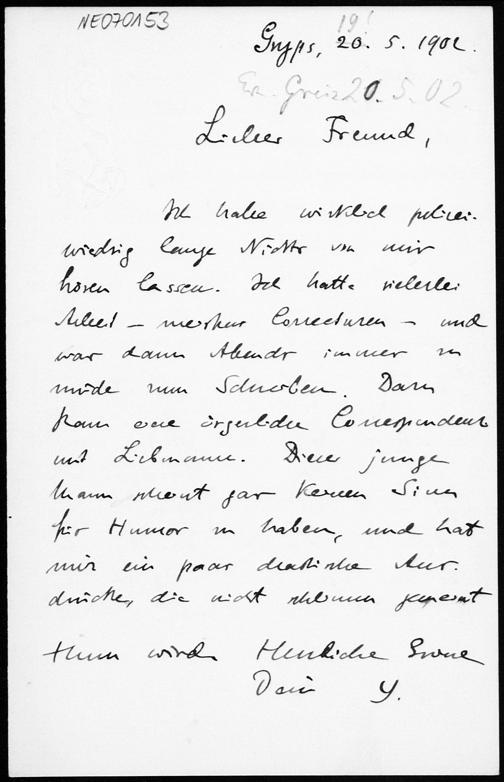 NE070153
19!
Gryps, 20. 5. 1902.
Greiz 20. 5. 02
Lieber Freund,
Ich habe wirklich polizei-
widrig lange Nichts von mir
hören lassen. Ich hatte vielerlei
Arbeit – meistens Correcturen – und
war dann Abends immer zu
müde zum Schreiben. Dazu
kam eine ärgerliche Correspondenz
mit Liebmann. Dieser junge
Mann scheint gar keinen Sinn
für Humor zu haben, und hat
mir ein paar drastische Aus-
drücke, die nicht schlimm gemeint
wird Herzliche Grüsse
Dein